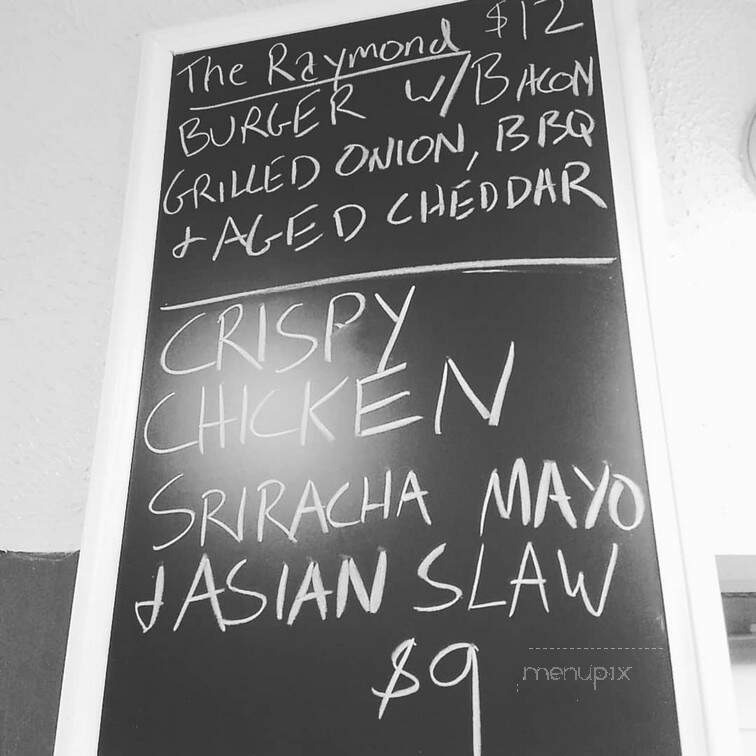 The Raymond $12
BURGER W/BACON
GRILLED ONION, BBQ
& AGED CHEDDAR
CRISPY
CHICKEN
SRIRACHA MAYO
& ASIAN SLAW
$9
menupix